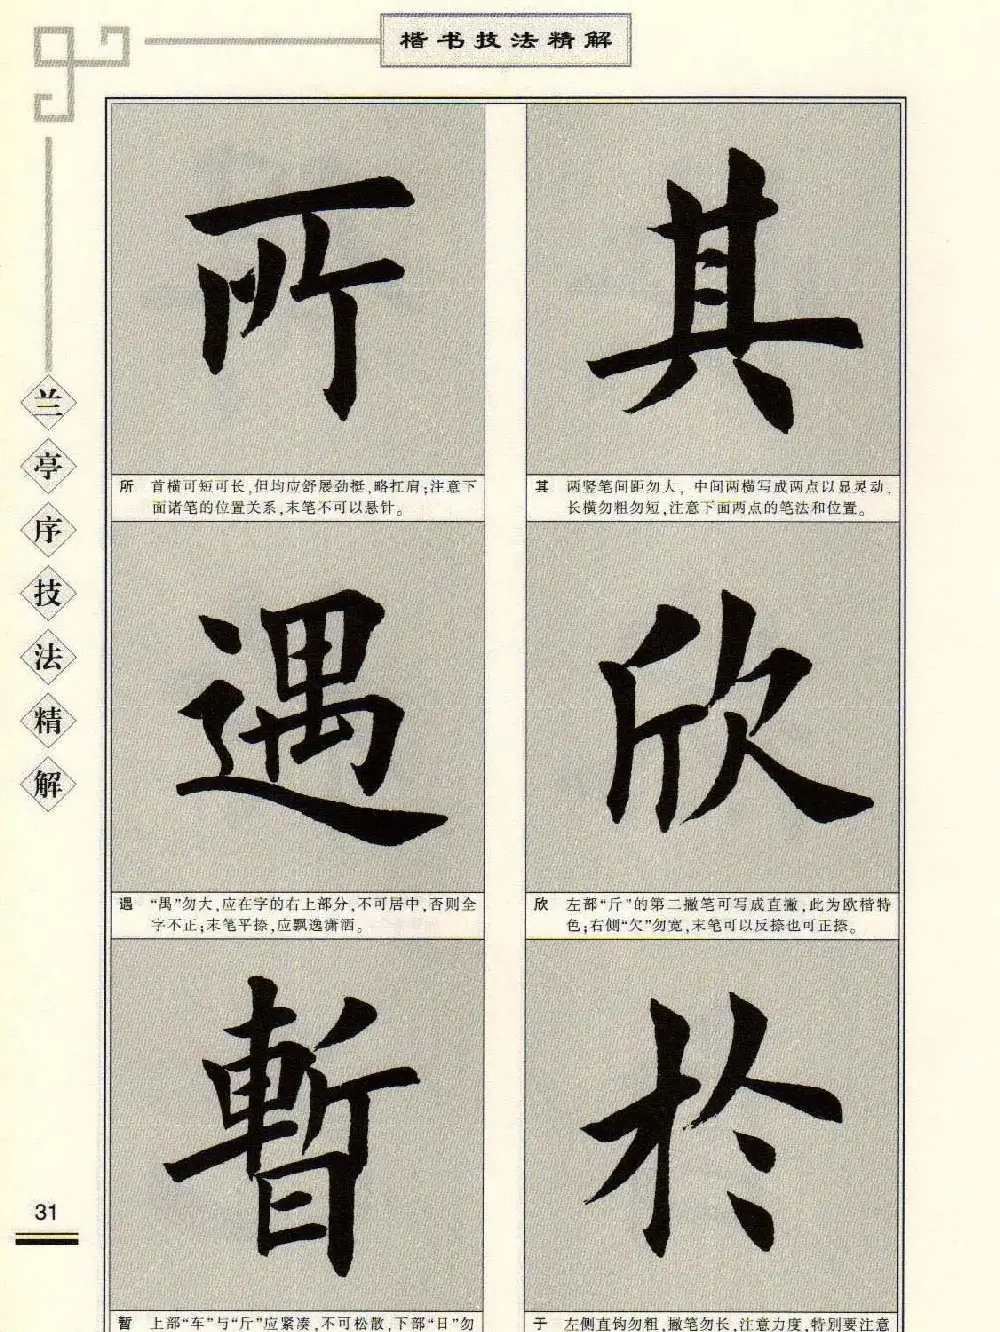 楷书技法精解
兰亭序技法精解
其
其 两竖笔间距勿大，中间两横写成两点以显灵动，
长横勿粗勿短，注意下面两点的笔法和位置。
所
所 首横可短可长，但均应舒展劲挺，略扛肩；注意下
面诸笔的位置关系，末笔不可以悬针。
欣
欣 左部“斤”的第二撇笔可写成直撇，此为欧楷特
色；右侧“欠”勿宽，末笔可以反捺也可正捺。
遇
遇 “禺”勿大，应在字的右上部分，不可居中，否则全
字不正；末笔平捺，应飘逸潇洒。
於
于 左侧直钩勿粗，撇笔勿长，注意力度，特别要注意
暫
暂 上部“车”与“斤”应紧凑，不可松散，下部“日”勿
31